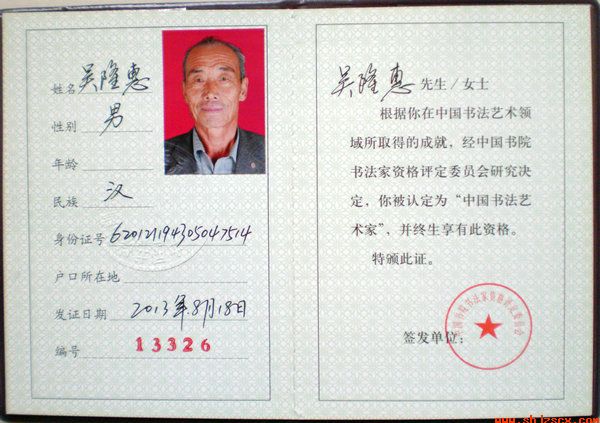 姓名 吴隆惠
性别 男
年龄
民族 汉
身份证号 620121194305047514
户口所在地
发证日期 2013年8月18日
编号 13326
吴隆惠 先生／女士
根据你在中国书法艺术领
域所取得的成就，经中国书院
书法家资格评定委员会研究决
定，你被认定为“中国书法艺
术家”，并终生享有此资格。
特颁此证。
签发单位：
中国书院书法家资格评定委员会
www.shjzscx.com